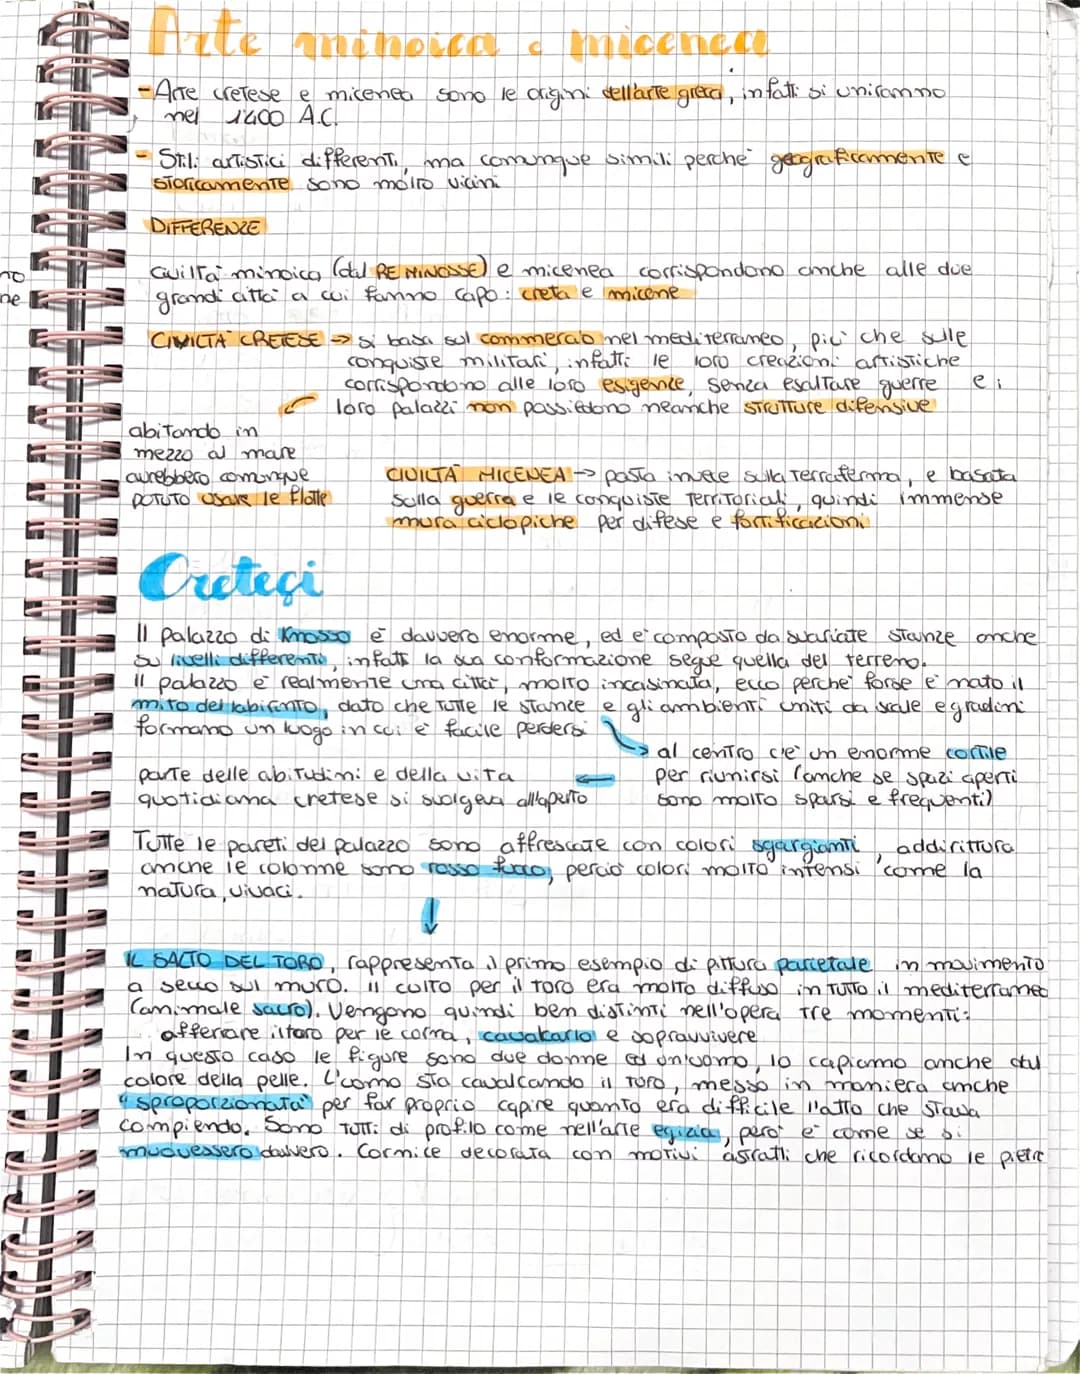 Arte minoica e micenea
- Arte cretese e micenea sono le origini dell'arte greca, infatti si uniranno
nel 1400 A.C.
- Stili artistici differenti, ma comunque simili perchè geograficamente e
storicamente sono molto vicini
DIFFERENZE
Civiltà minoica (dal RE MINOSSE) e micenea corrispondono anche alle due
grandi città a cui fanno capo: creta e micene
CIVILTÀ CRETESE → si basa sul commercio nel mediterraneo, più che sulle
conquiste militari, infatti le loro creazioni artistiche
corrispondono alle loro esigenze, senza esaltare guerre e i
loro palazzi non possiedono neanche strutture difensive
abitando in
mezzo al mare
avrebbero comunque
potuto usare le flotte
CIVILTÀ MICENEA → posta invece sulla terraferma, e basata
sulla guerra e le conquiste territoriali, quindi immense
mura ciclopiche per difese e fortificazioni
Cretesi
Il palazzo di Knosso è davvero enorme, ed è composto da svariate stanze anche
su livelli differenti, infatti la sua conformazione segue quella del terreno.
Il palazzo è realmente una città, molto incasinata, ecco perchè forse è nato il
mito del labirinto, dato che tutte le stanze e gli ambienti uniti da scale e gradini
formano un luogo in cui è facile perdersi
al centro c'è un enorme cortile
per riunirsi (anche se spazi aperti
sono molto sparsi e frequenti)
parte delle abitudini e della vita
quotidiana cretese si svolgeva all'aperto
Tutte le pareti del palazzo sono affrescate con colori sgargianti, addirittura
anche le colonne sono rosso fuoco, perciò colori molto intensi come la
natura, vivaci.
IL SALTO DEL TORO, rappresenta il primo esempio di pittura parietale in movimento
a secco sul muro. Il culto per il toro era molto diffuso in tutto il mediterraneo
(animale sacro). Vengono quindi ben distinti nell'opera tre momenti:
afferrare il toro per le corna, cavalcarlo e sopravvivere
In questo caso le figure sono due donne ed un'uomo, lo capiamo anche dal
colore della pelle. L'uomo sta cavalcando il toro, messo in maniera anche
"sproporzionata" per far proprio capire quanto era difficile l'atto che stava
compiendo. Sono tutti di profilo come nell'arte egizia, però è come se si
muovessero davvero. Cornice decorata con motivi astratti che ricordano le pietre